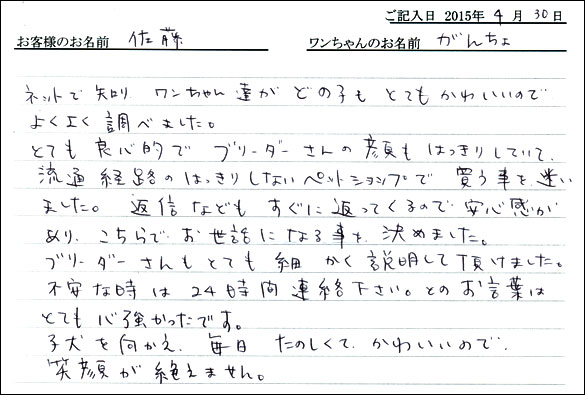 ご記入日 2015年 4 月 30 日
お客様のお名前 佐藤 ワンちゃんのお名前 がんちょ
ネットで 知り ワンちゃん 達が どの子も とても かわいいので
よくよく 調べました。
とても 良心的で ブリーダー さんの 顔も はっきりしていて、
流通 経路の はっきりしない ペットショップで 買う事を 迷い
ました。 返信 なども すぐに 返ってくるので 安心感が
あり、こちらで お世話に なる事を 決めました。
ブリーダー さんも とても 細かく 説明して 頂けました。
不安な時は 24時間 連絡下さい。との お言葉は
とても 心強かったです。
子犬を 向かえ、毎日 たのしくて かわいいので
笑顔が 絶えません。